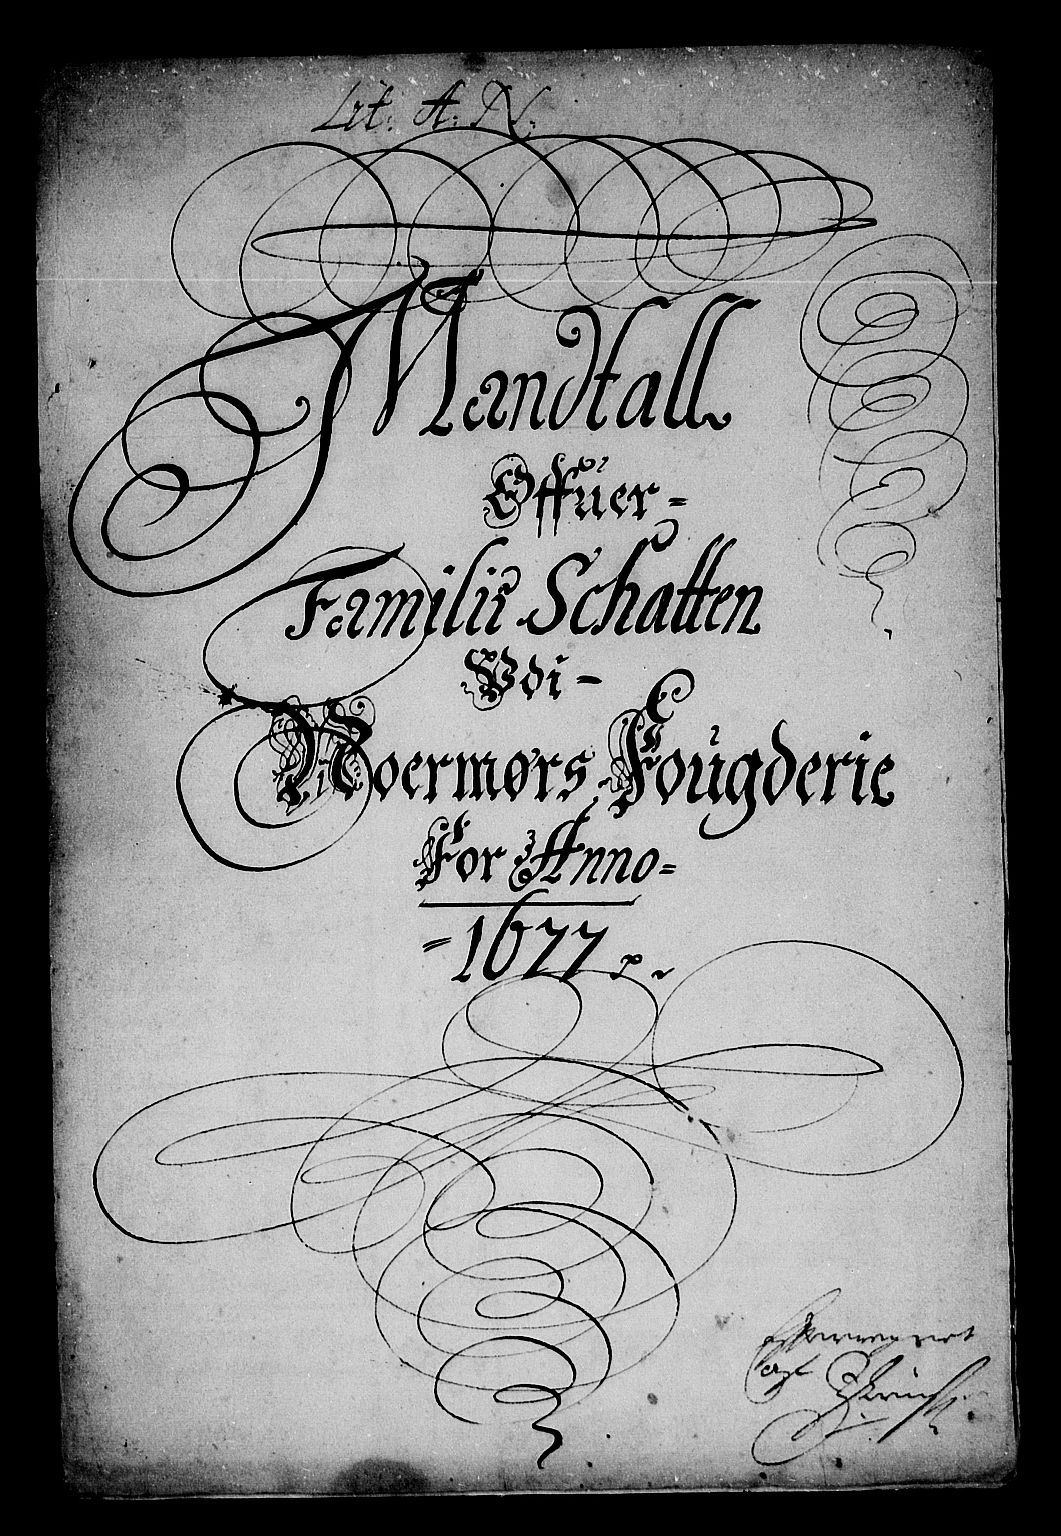 Lit. A. N:
Mandtall
Offuer=
Familiÿ Schatten
Vdi-
Noermørs Fougderie
For Anno=
-1677